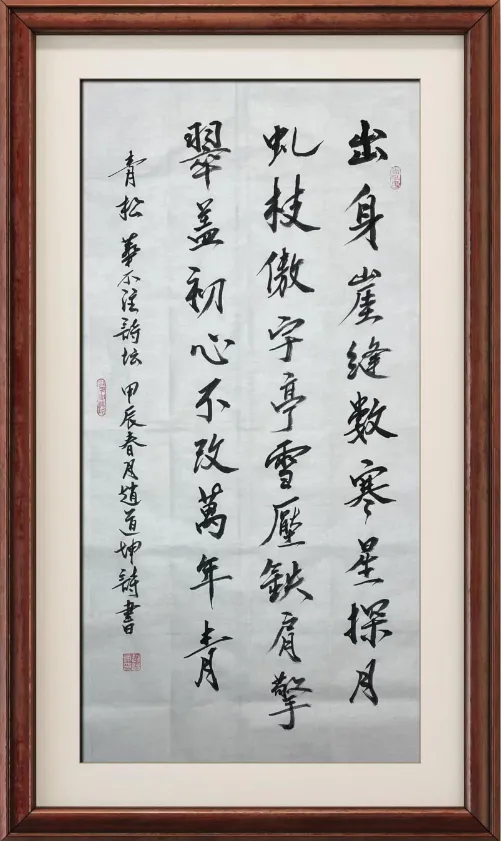 出身崖縫数寒星探月
虬枝傲宇亭雪壓鉄肩擎
翠盖初心不改萬年青
青松 華不注詩坛 甲辰春月趙道坤詩書